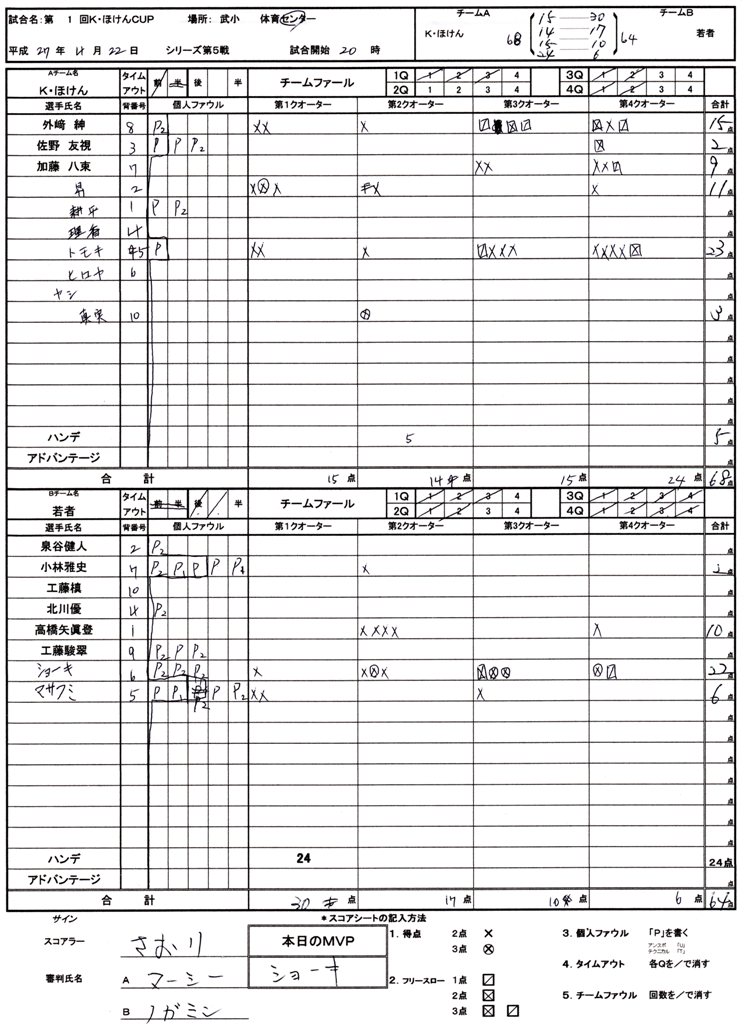 試合名：第 1 回K・ほけんCUP 場所： 武小 体育センター
平成 27 年 4 月 22 日 シリーズ第5戦 試合開始 20 時
チームA チームB
K・ほけん 68 64 若者
15 30
14 17
15 10
24 6
Aチーム名 タイム 前 半 後 半 チームファール 1Q 1 2 3 4 3Q 1 2 3 4
K・ほけん アウト 2Q 1 2 3 4 4Q 1 2 3 4
選手氏名 背番号 個人ファウル 第1クオーター 第2クオーター 第3クオーター 第4クオーター 合計
外崎 紳 8 P2 XX X 15点
佐野 友視 3 P P P2 2点
加藤 八束 7 XX XX 9点
昇 2 X X X X 11点
耕平 1 P P2 点
4 点
トモキ 45 P XX X XXX XXXX 23点
ヒロヤ 6 点
ヤシ 点
真実 10 3点
ハンデ 5 5点
アドバンテージ 点
合 計 15 点 14 点 15 点 24 点 68点
Bチーム名 タイム 前 半 後 半 チームファール 1Q 1 2 3 4 3Q 1 2 3 4
若者 アウト 2Q 1 2 3 4 4Q 1 2 3 4
選手氏名 背番号 個人ファウル 第1クオーター 第2クオーター 第3クオーター 第4クオーター 合計
泉谷健人 2 P2 点
小林雅史 7 P2 P1 P P P4 X 2点
工藤槙 10 点
北川優 4 P2 点
高橋矢眞登 1 XXXX X 10点
工藤駿翠 9 P P P2 点
ショーキ 6 P2 P2 P2 X X X 22点
マサフミ 5 P P1 P2 P P2 XX X 6点
ハンデ 24 24点
アドバンテージ 点
合 計 30 点 17 点 10 点 6 点 64点
サイン
スコアラー さおり
審判氏名 A マーシー
B ノガミン
本日のMVP
ショーキ
＊スコアシートの記入方法
1. 得点 2点 ×
3点 ⊗
2. フリースロー 1点 ☐
2点 ☒
3点 ☒ ☐
3. 個人ファウル 「P」を書く
アンスポ 「U」
テクニカル 「T」
4. タイムアウト 各Qを／で消す
5. チームファウル 回数を／で消す